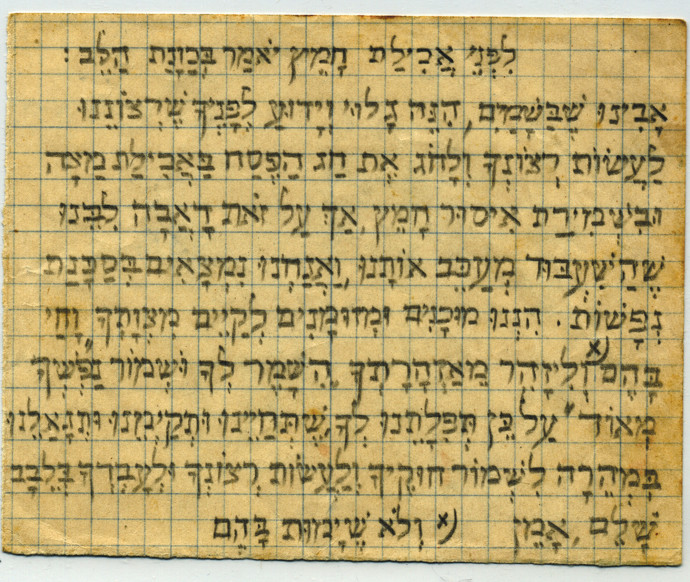 לִפְנֵי אֲכִילַת חָמֵץ יֹאמַר בְּכַוָּנַת הַלֵּב :
אָבִינוּ שֶׁבַּשָּׁמַיִם, הִנֵּה גָלוּי וְיָדוּעַ לְפָנֶיךָ שֶׁרְצוֹנֵנוּ
לַעֲשׂוֹת רְצוֹנְךָ וְלָחֹג אֶת חַג הַפֶּסַח בַּאֲכִילַת מַצָּה
וּבִשְׁמִירַת אִיסוּר חָמֵץ, אַךְ עַל זֹאת דָּאֲבָה לִבֵּנוּ
שֶׁהַשִּׁעְבּוּד מְעַכֵּב אוֹתָנוּ, וַאֲנַחְנוּ נִמְצָאִים בְּסַכָּנַת
נְפָשׁוֹת. הִנְנוּ מוּכָנִים וּמְזוּמָּנִים לְקַיֵּים מִצְוָתְךָ "וָחַי
בָּהֶם x) וְלִיזָּהֵר מֵאַזְהָרָתְךָ "הִשָּׁמֶר לְךָ וּשְׁמוֹר נַפְשְׁךָ
מְאוֹד" עַל כֵּן תְּפִלָּתֵנוּ לְךָ, שֶׁתְּחַיֵּינוּ וּתְקַיְּמֵנוּ וְתִגְאָלֵנוּ
בִּמְהֵרָה לִשְׁמוֹר חוּקֶיךָ וְלַעֲשׂוֹת רְצוֹנְךָ וּלְעָבְדְּךָ בְּלֵבָב
שָׁלֵם, אָמֵן x) וְלֹא שֶׁיָּמוּת בָּהֶם